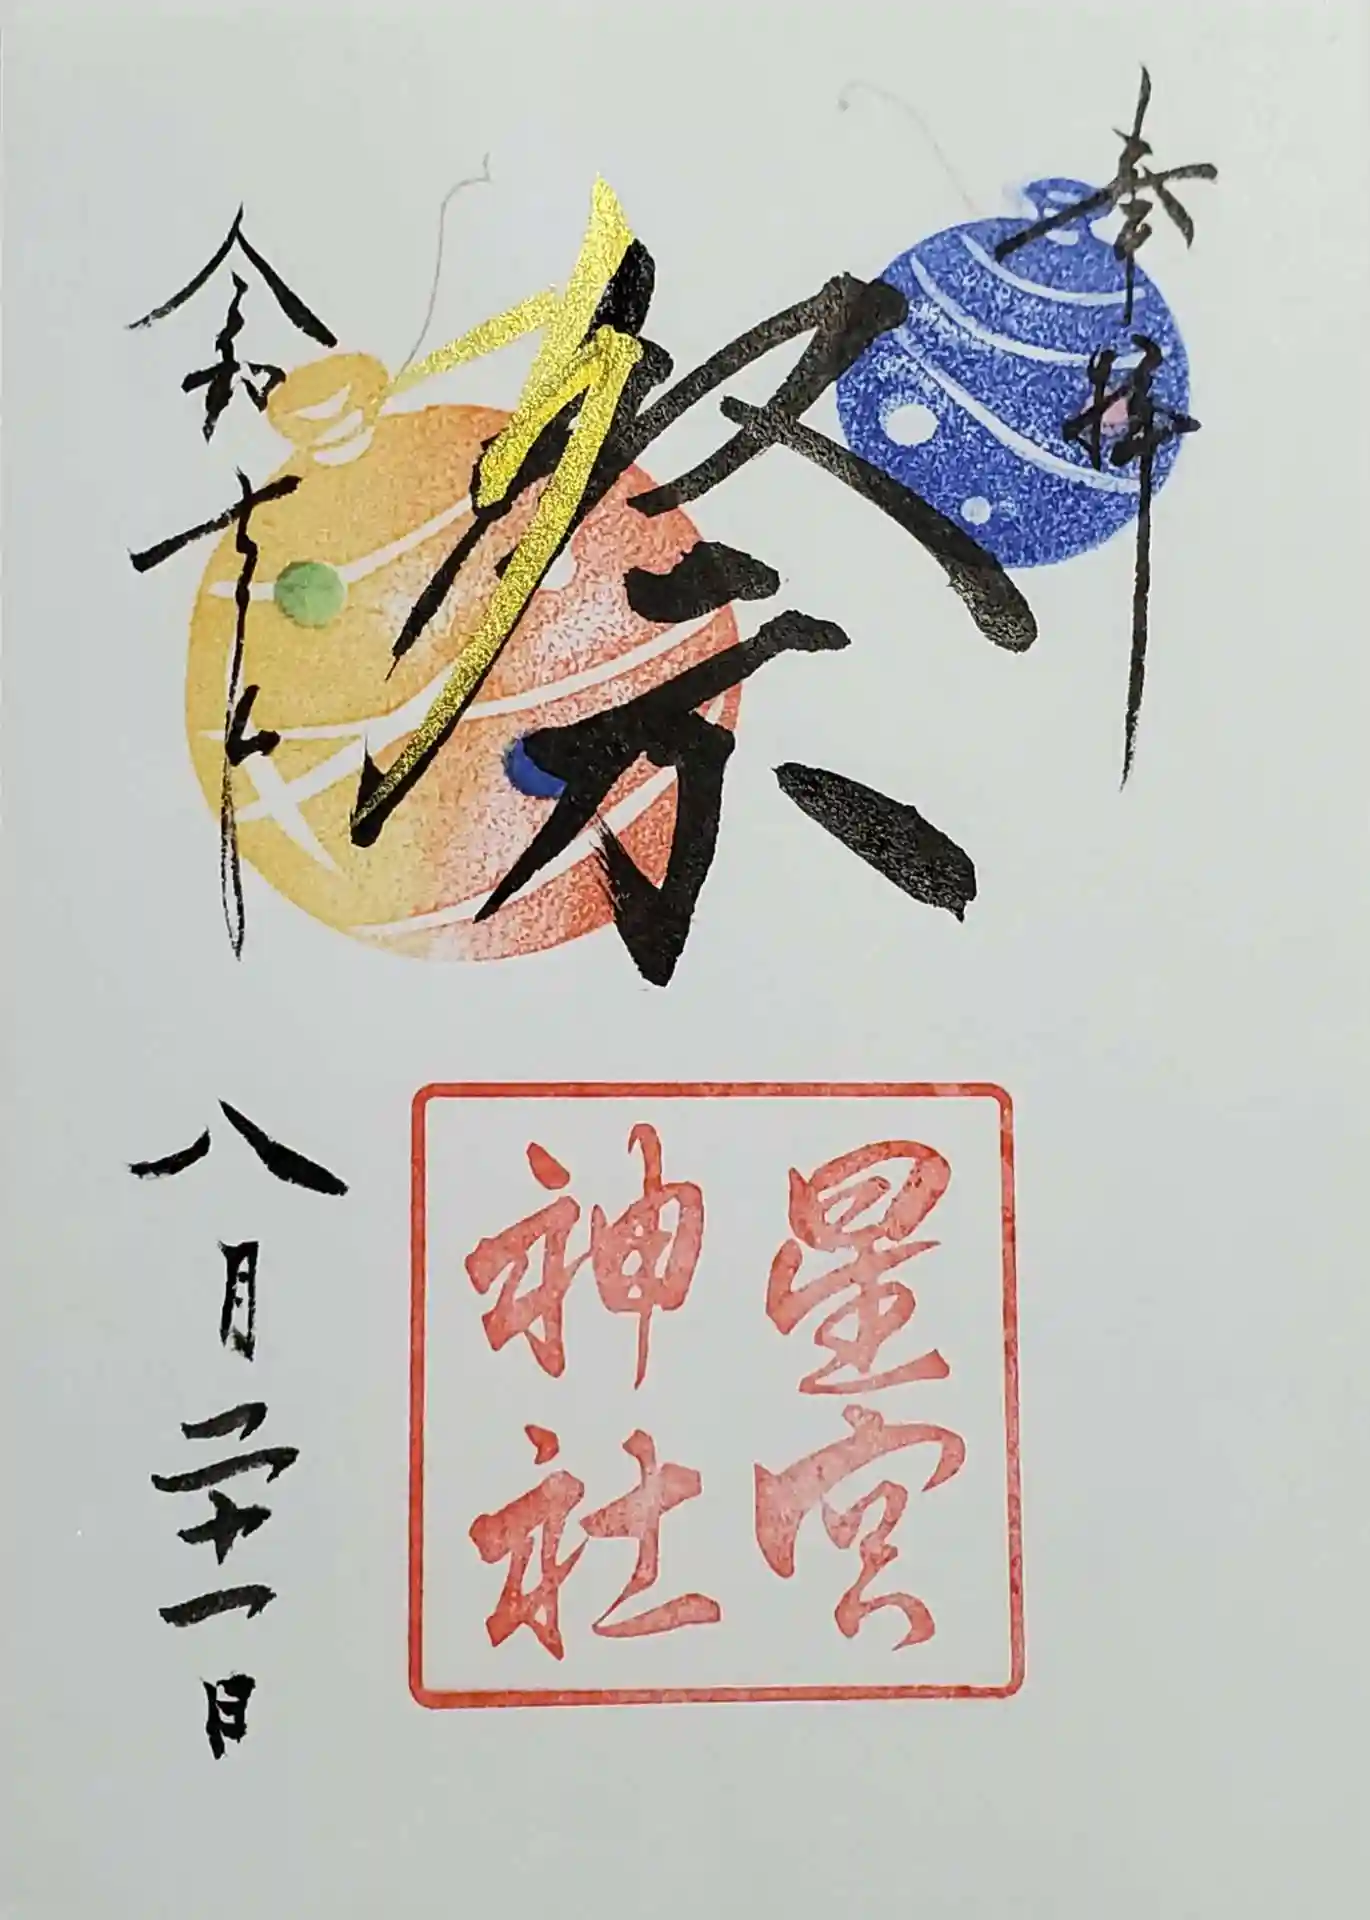 奉拝
祭
星宮
神社
令和七年
八月二十一日